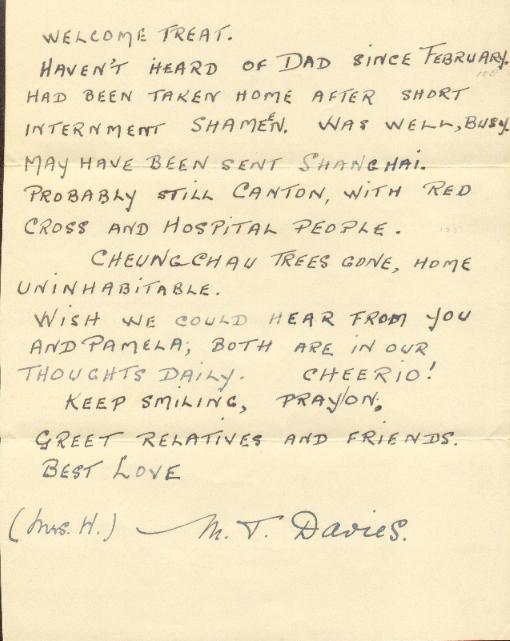 WELCOME TREAT.
HAVEN'T HEARD OF DAD SINCE FEBRUARY.
HAD BEEN TAKEN HOME AFTER SHORT
INTERNMENT SHAMEEN. WAS WELL, BUSY.
MAY HAVE BEEN SENT SHANGHAI.
PROBABLY STILL CANTON, WITH RED
CROSS AND HOSPITAL PEOPLE.
CHEUNGCHAU TREES GONE, HOME
UNINHABITABLE.
WISH WE COULD HEAR FROM YOU
AND PAMELA; BOTH ARE IN OUR
THOUGHTS DAILY. CHEERIO!
KEEP SMILING, PRAY/ON.
GREET RELATIVES AND FRIENDS.
BEST LOVE
(Mrs. H.) — M. T. Davies.